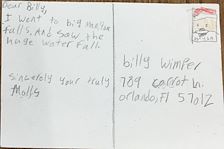 Dear Billy,
I went to big Meadow
falls. And saw the
huge water fall.
Sincerely your truly
Molly
billy wimper
789 carrot ln.
orlando, Fl 57012